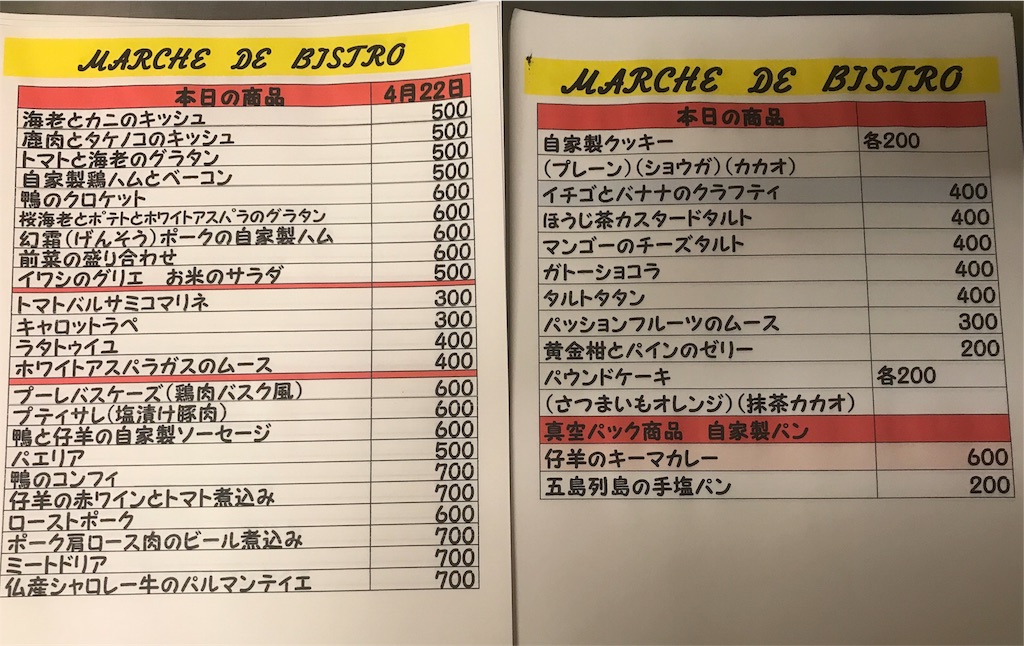 MARCHE DE BISTRO
本日の商品 4月22日
海老とカニのキッシュ 500
鹿肉とタケノコのキッシュ 500
トマトと海老のグラタン 500
自家製鶏ハムとベーコン 500
鴨のクロケット 600
桜海老とポテトとホワイトアスパラのグラタン 600
幻霜(げんそう)ポークの自家製ハム 600
前菜の盛り合わせ 600
イワシのグリエ お米のサラダ 500
トマトバルサミコマリネ 300
キャロットラペ 300
ラタトゥイユ 400
ホワイトアスパラガスのムース 400
プーレバスケーズ(鶏肉バスク風) 600
プティサレ(塩漬け豚肉) 600
鴨と仔羊の自家製ソーセージ 600
パエリア 500
鴨のコンフィ 700
仔羊の赤ワインとトマト煮込み 700
ローストポーク 600
ポーク肩ロース肉のビール煮込み 700
ミートドリア 700
仏産シャロレー牛のパルマンティエ 700
MARCHE DE BISTRO
本日の商品
自家製クッキー 各200
(プレーン)(ショウガ)(カカオ)
イチゴとバナナのクラフティ 400
ほうじ茶カスタードタルト 400
マンゴーのチーズタルト 400
ガトーショコラ 400
タルトタタン 400
パッションフルーツのムース 300
黄金柑とパインのゼリー 200
パウンドケーキ 各200
(さつまいもオレンジ)(抹茶カカオ)
真空パック商品 自家製パン
仔羊のキーマカレー 600
五島列島の手塩パン 200